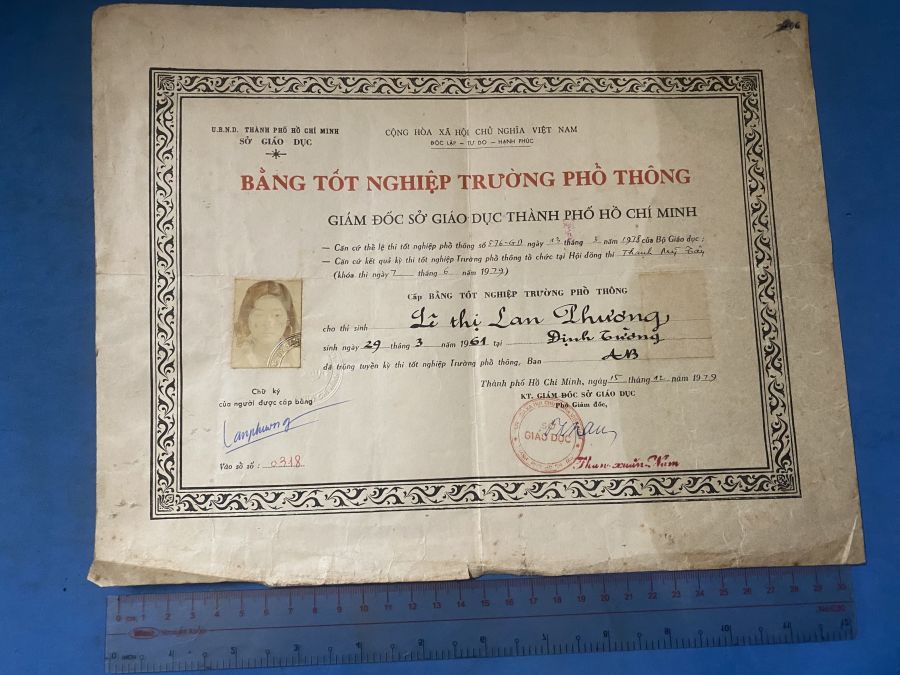 U.B.N.D. THÀNH PHỐ HỒ CHÍ MINH
SỞ GIÁO DỤC
CỘNG HÒA XÃ HỘI CHỦ NGHĨA VIỆT NAM
ĐỘC LẬP – TỰ DO – HẠNH PHÚC
BẰNG TỐT NGHIỆP TRƯỜNG PHỔ THÔNG
GIÁM ĐỐC SỞ GIÁO DỤC THÀNH PHỐ HỒ CHÍ MINH
— Căn cứ thể lệ thi tốt nghiệp phổ thông số 876-GD ngày 13 tháng 5 năm 1978 của Bộ Giáo dục ;
— Căn cứ kết quả kỳ thi tốt nghiệp Trường phổ thông tổ chức tại Hội đồng thi Thạnh Mỹ Tây
(khóa thi ngày 7 tháng 6 năm 1979)
Cấp BẰNG TỐT NGHIỆP TRƯỜNG PHỔ THÔNG
cho thí sinh Lê thị Lan Phương
sinh ngày 29 tháng 3 năm 1961 tại Định Tường
đã trúng tuyển kỳ thi tốt nghiệp Trường phổ thông, Ban AB
Thành phố Hồ Chí Minh, ngày 15 tháng 12 năm 1979
KT. GIÁM ĐỐC SỞ GIÁO DỤC
Phó Giám đốc,
Chữ ký
của người được cấp bằng
Lanphuong
SỞ
GIÁO DỤC
Vào sổ số : 0318
0 CM. 1 2 3 4 5 6 7 8 9 10 11 12 13 14 15 16 17 18 19 20 21 22 23 24 25 26 27 28 29 30